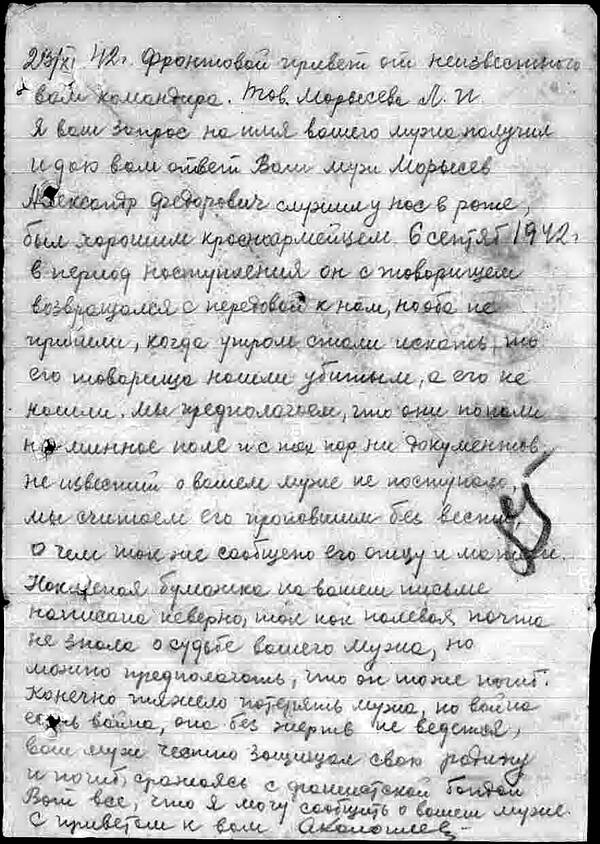 23/XI 42г. Фронтовой привет от неизвестного
вам командира. Тов. Морысева Л. И.
Я ваш запрос на имя вашего мужа получил
и даю вам ответ Ваш муж Морысев
Александр Федорович служил у нас в роте,
был хорошим красноармейцем. 6 сентяб 1942г
в период наступления он с товарищем
возвращался с передовой к нам, но оба не
пришли, когда утром стали искать, то
его товарища нашли убитым, а его не
нашли. мы предполагаем, что они попали
на минное поле и с тех пор ни документов,
не известий о вашем муже не поступало,
мы считаем его пропавшим без вести,
о чем так же сообщено его отцу и матери.
Наклееная бумажка на вашем письме
написана неверно, так как полевая почта
не знала о судьбе вашего мужа, но
можно предполагать, что он тоже погиб.
Конечно тяжело потерять мужа, но война
есть война, она без жертв не ведется,
ваш муж честно защищал свою родину
и погиб, сражаясь с фашистской бандой
Вот все, что я могу сообщить о вашем муже.
С приветом к вам